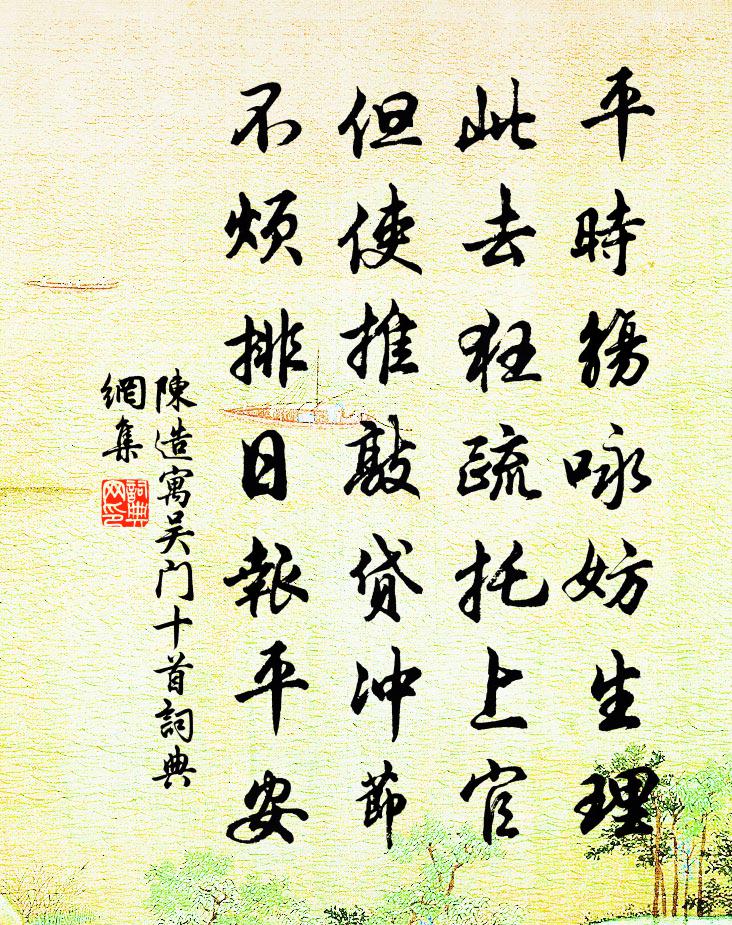 平時觴咏妨生理
此去狂疏托上官
但使推敲貸冲節
不煩排日報平安
陳造寓吴门十首詞典
網集
詞典
网